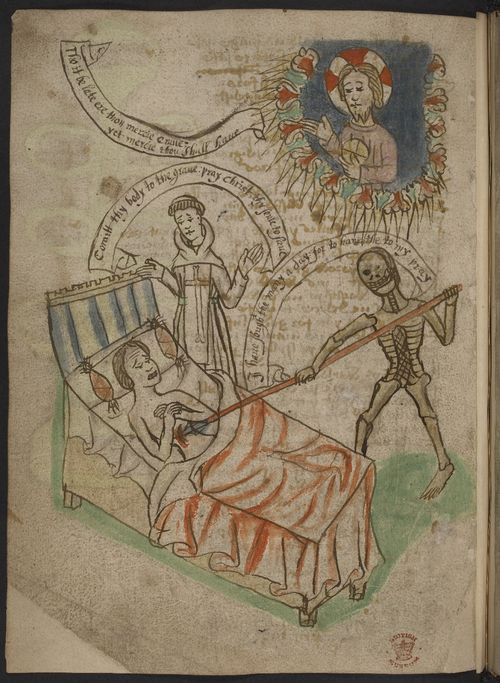 Tho it be late ere thou mercie craue
yet mercie thou shalt haue
Comitt thy body to the graue. pray Christ thy soule to saue
I haue sought the many a day for to haue the to my pray
BRITISH
MUSEUM